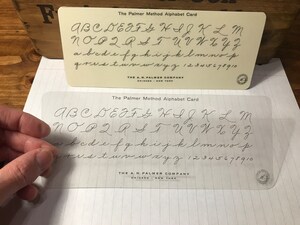 The Palmer Method Alphabet Card
A B C D E F G H I J K L M
N O P Q R S T U V W X Y Z
a b c d e f g h i j k l m n o p
q r s t u v w x y z 1 2 3 4 5 6 7 8 9 10
THE A. N. PALMER COMPANY
CHICAGO · NEW YORK
The Palmer Method Alphabet Card
A B C D E F G H I J K L M
N O P Q R S T U V W X Y Z
a b c d e f g h i j k l m n o p
q r s t u v w x y z 1 2 3 4 5 6 7 8 9 10
THE A. N. PALMER COMPANY
CHICAGO · NEW YORK